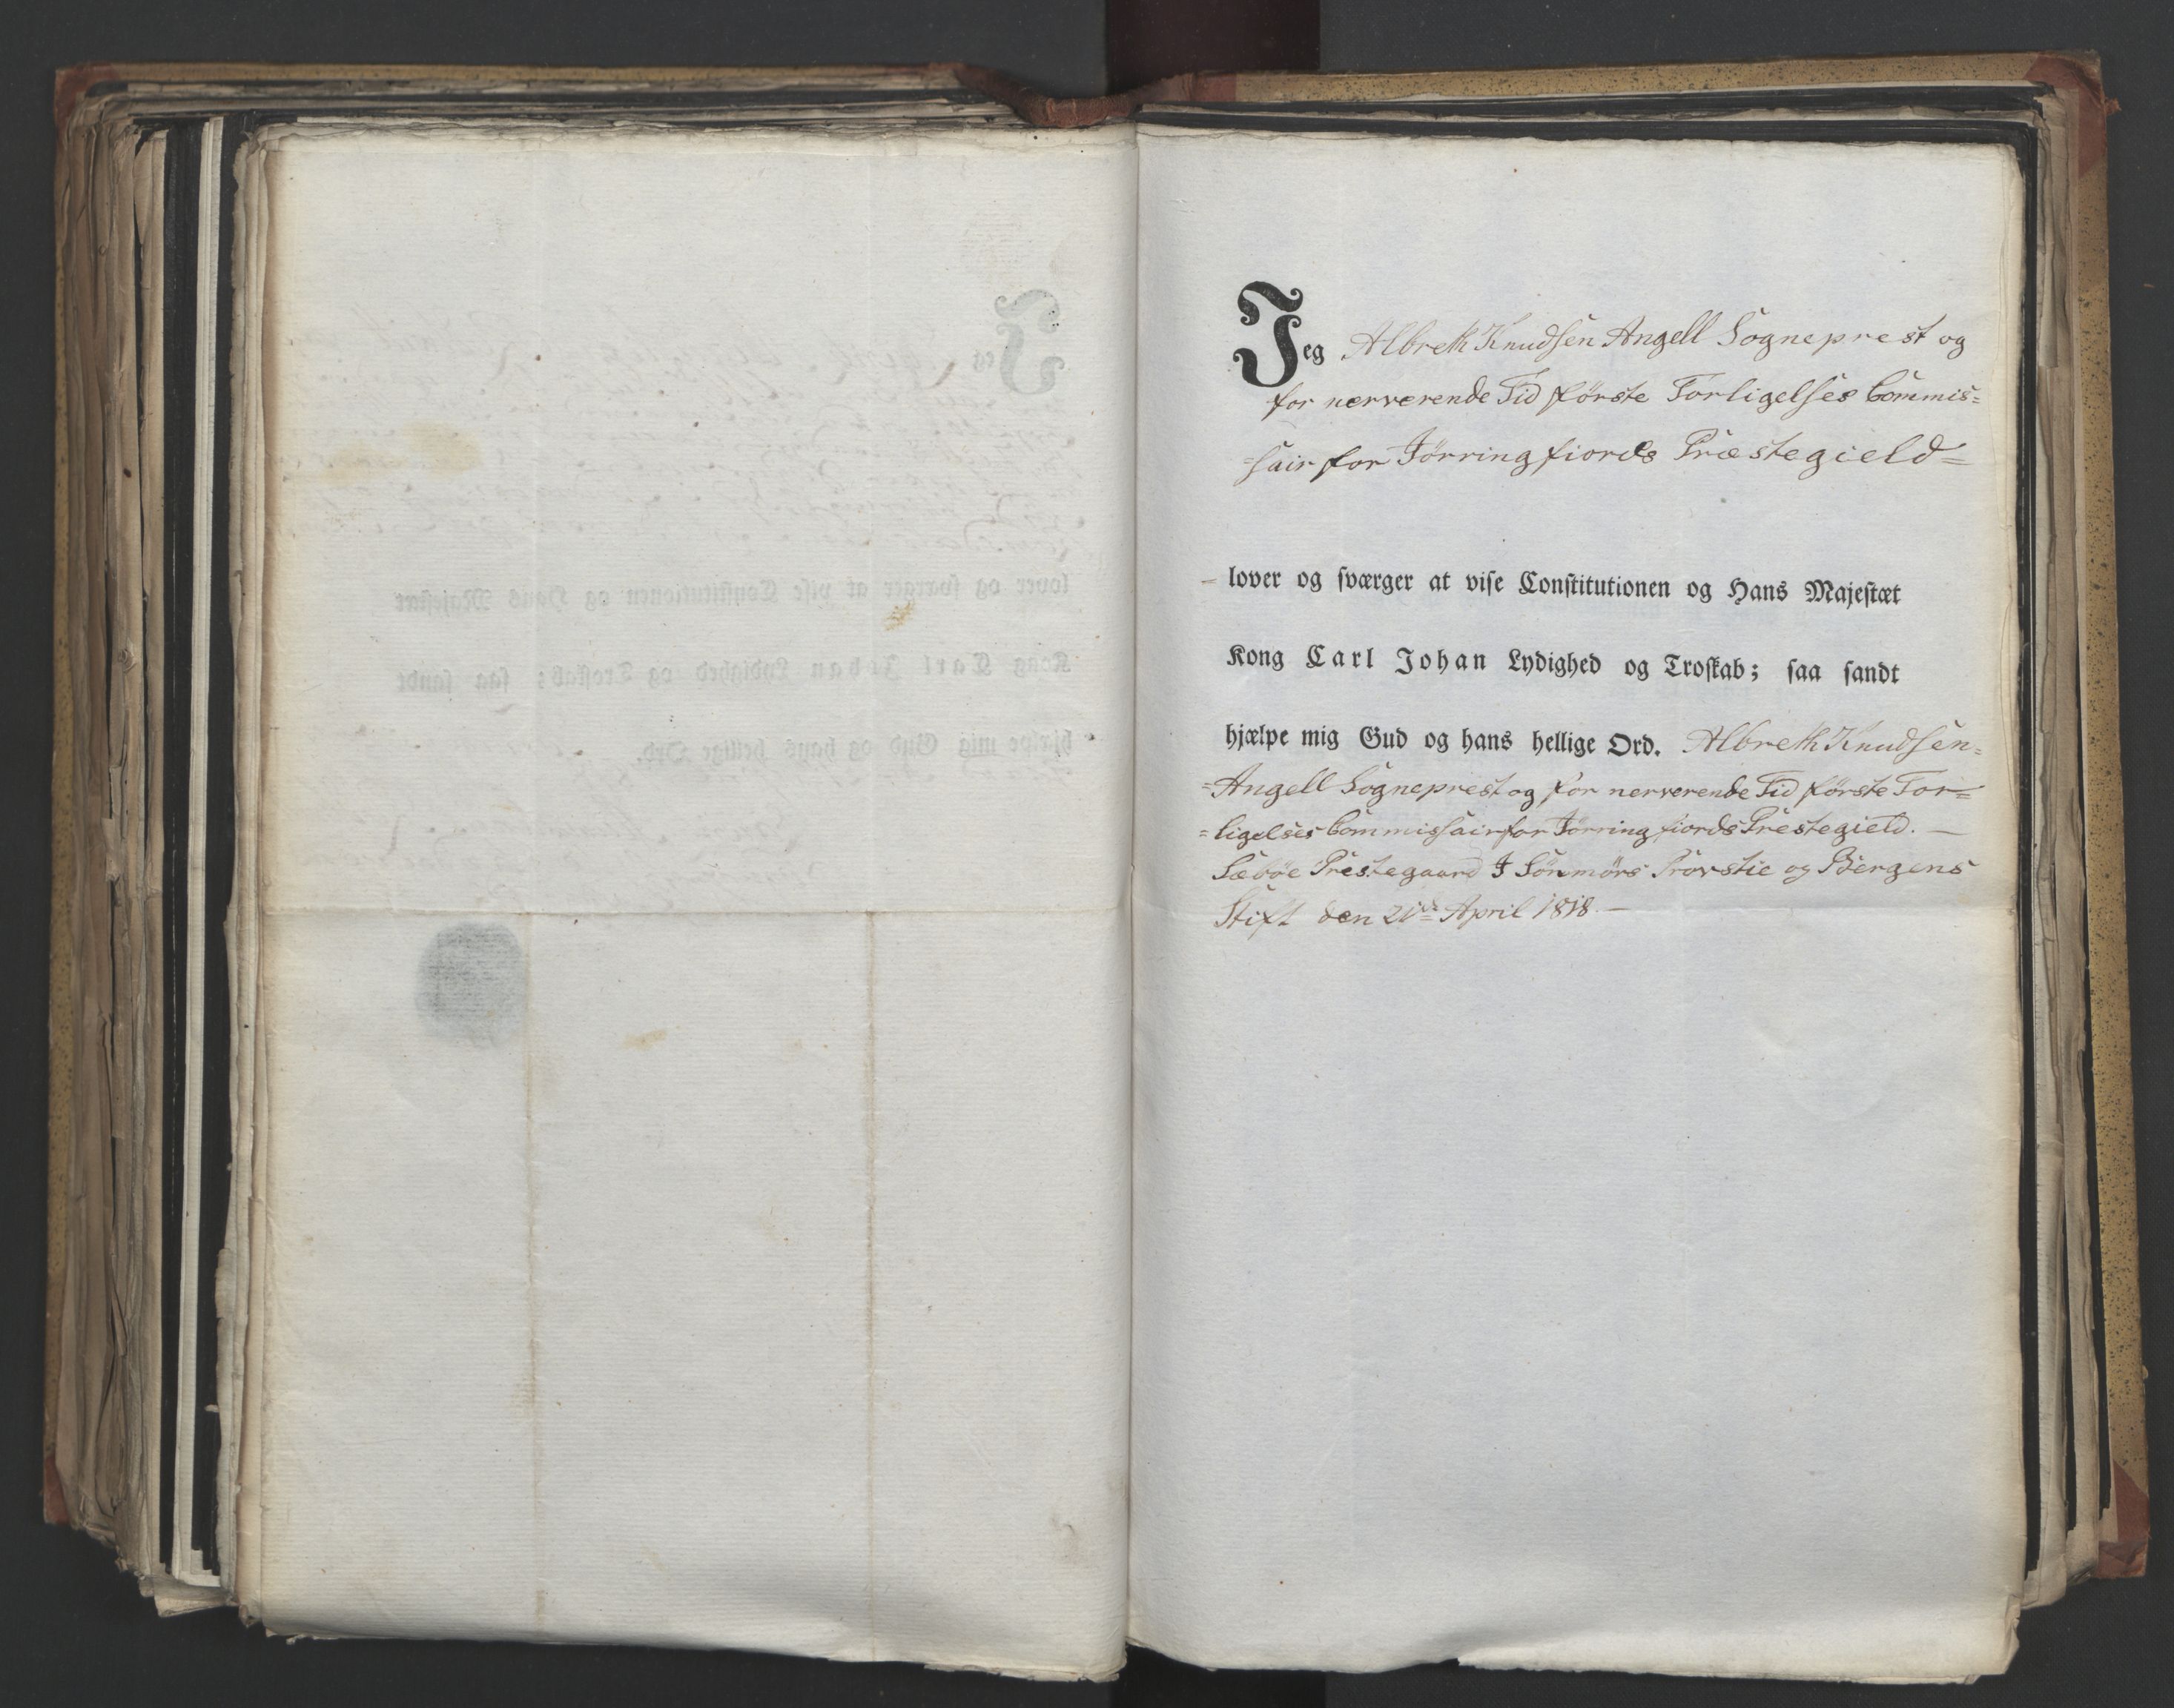 Jeg Albreth Knudsen Angell Sogneprest og
for nerverende Tid første Forligelses Commis=
=sair for Jørringfiords Præstegield=
lover og sværger at vise Constitutionen og Hans Majestæt
Kong Carl Johan Lydighed og Troskab; saa sandt
hjælpe mig Gud og hans hellige Ord. Albreth Knudsen=
=Angell Sogneprest og for nerverende Tid første For=
=ligelses Commissair for Jørringfiords Prestegield. —
Sæbøe Prestegaard I Sönmörs Provstie og Bergens
Stift den 21de April 1818. —